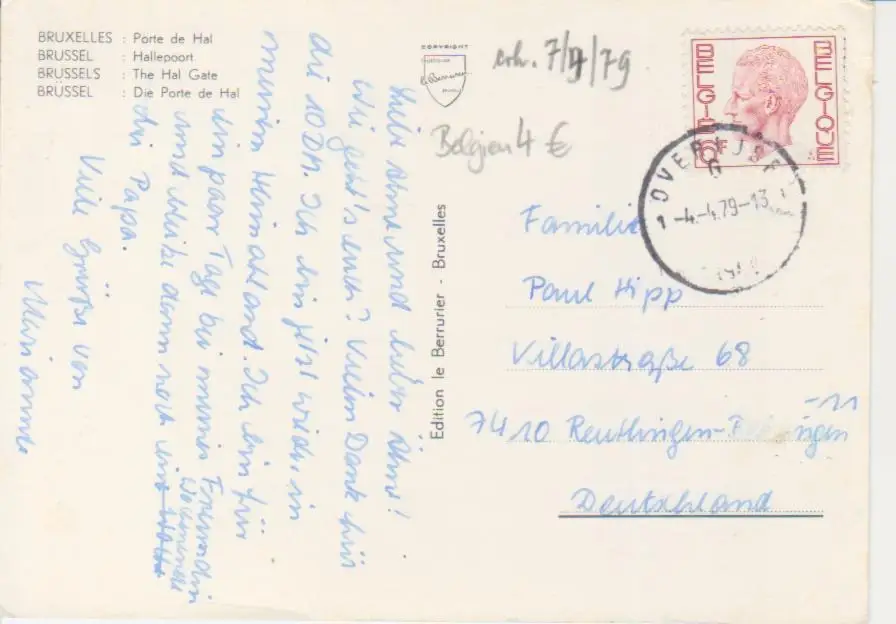 BRUXELLES : Porte de Hal
BRUSSEL : Hallepoort
BRUSSELS : The Hal Gate
BRÜSSEL : Die Porte de Hal
COPYRIGHT
erh. 7/4/79
Belgien 4 €
BELGIE BELGIQUE
6F
OVERIJSE
1 -4.-4.79-13 1
Liebe Ahne und lieber Ähne!
Wie geht's euch? Vielen Dank für
die 10 DM. Ich bin jetzt wieder in
meinem Heimatland. Ich bin für
ein paar Tage bei meiner Freundin
und bleibe dann noch ein Wochenende
bei Papa.
Viele Grüße von
Marianne
Edition le Berrurier - Bruxelles
Familie
Paul Hipp
Villastraße 68
7410 Reutlingen-
-11
Deutschland